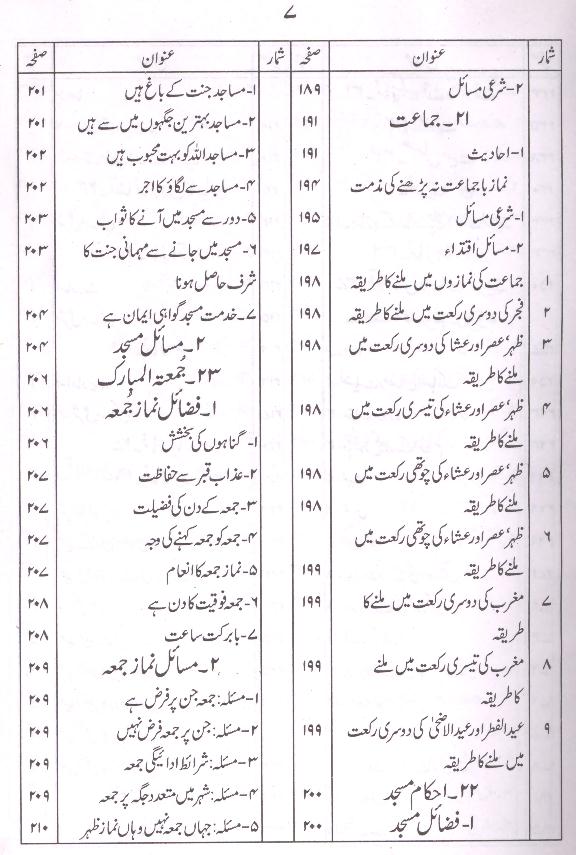 ۷
شمار عنوان صفحہ
۲-شرعی مسائل ۱۸۹
۲۱-جماعت ۱۹۱
۱-احادیث ۱۹۱
نماز باجماعت نہ پڑھنے کی مذمت ۱۹۴
۱-شرعی مسائل ۱۹۵
۲-مسائل اقتداء ۱۹۷
۱ جماعت کی نمازوں میں ملنے کا طریقہ ۱۹۸
۲ فجر کی دوسری رکعت میں ملنے کا طریقہ ۱۹۸
۳ ظہر‘ عصر اور عشا کی دوسری رکعت میں ۱۹۸
ملنے کا طریقہ
۴ ظہر‘ عصر اور عشاء کی تیسری رکعت میں ۱۹۸
ملنے کا طریقہ
۵ ظہر‘ عصر اور عشاء کی چوتھی رکعت میں ۱۹۸
ملنے کا طریقہ ۱۹۸
۶ ظہر‘ عصر اور عشاء کی چوتھی رکعت میں
ملنے کا طریقہ ۱۹۹
۷ مغرب کی دوسری رکعت میں ملنے کا ۱۹۹
طریقہ
۸ مغرب کی تیسری رکعت میں ملنے ۱۹۹
کا طریقہ
۹ عیدالفطر اور عیدالاضحیٰ کی دوسری رکعت ۱۹۹
میں ملنے کا طریقہ
۲۲-احکام مسجد ۲۰۰
۱-فضائل مسجد ۲۰۰
شمار عنوان صفحہ
۱-مساجد جنت کے باغ ہیں ۲۰۱
۲-مساجد بہترین جگہوں میں سے ہیں ۲۰۱
۳-مساجد اللہ کو بہت محبوب ہیں ۲۰۲
۴-مساجد سے لگاؤ کا اجر ۲۰۲
۵-دور سے مسجد میں آنے کا ثواب ۲۰۳
۶-مسجد میں جانے سے مہمانی جنت کا ۲۰۳
شرف حاصل ہونا
۷-خدمت مسجد گواہی ایمان ہے ۲۰۴
۲-مسائل مسجد ۲۰۴
۲۳-جمعتہ المبارک ۲۰۶
۱-فضائل نماز جمعہ ۲۰۶
۱-گناہوں کی بخشش ۲۰۶
۲-عذاب قبر سے حفاظت ۲۰۷
۳-جمعہ کے دن کی فضیلت ۲۰۷
۴-جمعہ کو جمعہ کہنے کی وجہ ۲۰۷
۵-نماز جمعہ کا انعام ۲۰۷
۶-جمعہ فوقیت کا دن ہے ۲۰۸
۷-بابرکت ساعت ۲۰۸
۲-مسائل نماز جمعہ ۲۰۹
۱-مسئلہ: جمعہ جن پر فرض ہے ۲۰۹
۲-مسئلہ: جن پر جمعہ فرض نہیں ۲۰۹
۳-مسئلہ: شرائط ادائیگی جمعہ ۲۰۹
۴-مسئلہ: شہر میں متعدد جگہ پر جمعہ ۲۰۹
۵-مسئلہ: جہاں جمعہ نہیں وہاں نماز ظہر ۲۱۰